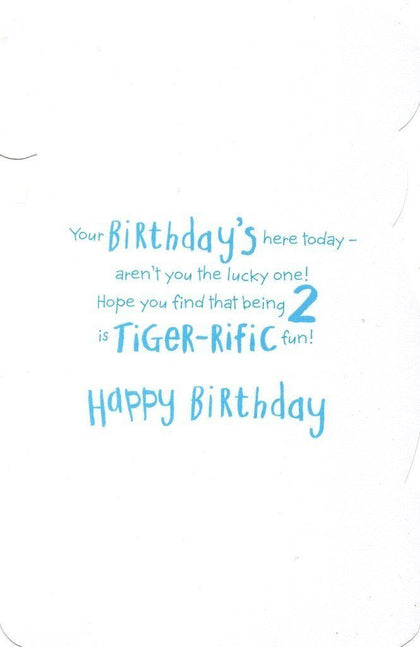 Your BiRthday's here today –
aren't you the lucky one!
Hope you find that being 2
is TiGeR-RiFiC fun!
Happy BiRthday